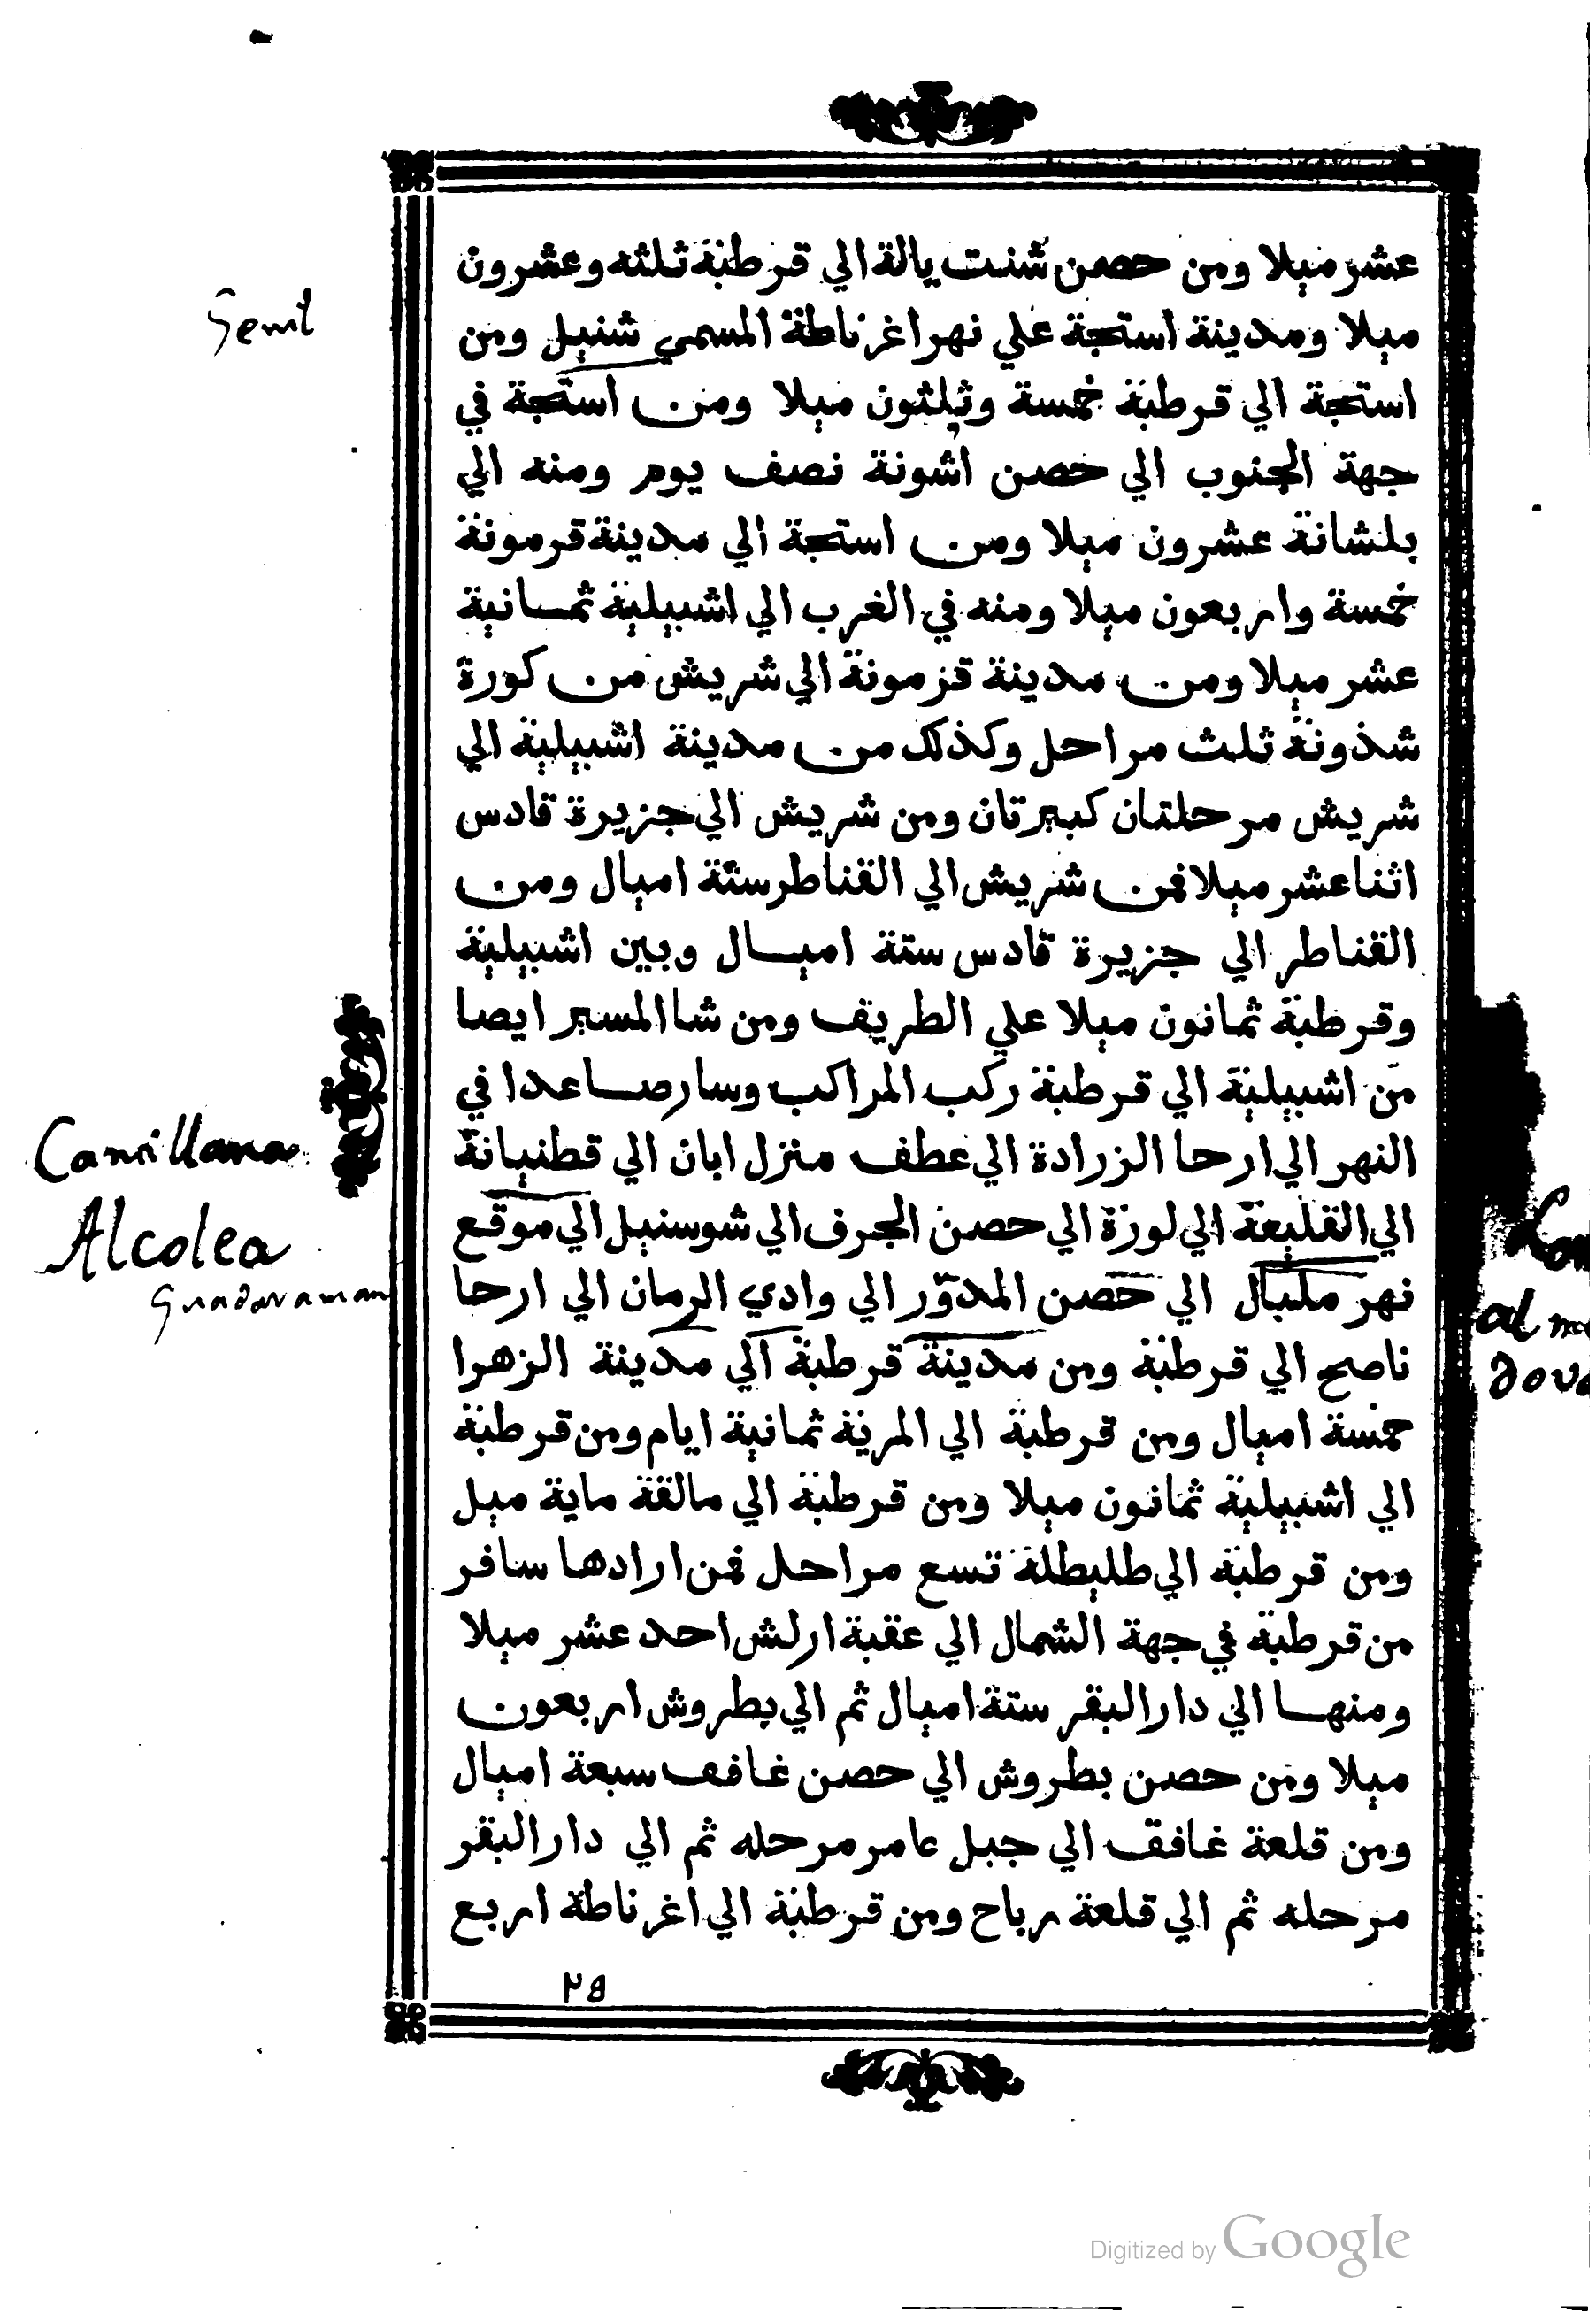 عشر ميلا ومن حصن شنت يالة الي قرطبة ثلثه وعشرون
ميلا ومدينة استجة علي نهر اغرناطة المسمي شنيل ومن
استجة الي قرطبة خمسة وثلثون ميلا ومن استجة في
جهة الجنوب الي حصن اشونة نصف يوم ومنه الي
بلشانة عشرون ميلا ومن استجة الي مدينة قرمونة
خمسة واربعون ميلا ومنه في الغرب الي اشبيلية ثمانية
عشر ميلا ومن مدينة قزمونة الي شريش من كورة
شذونة ثلث مراحل وكذلك من مدينة اشبيلية الي
شريش مرحلتان كبيرتان ومن شريش الي جزيرة قادس
اثنا عشر ميلا فمن شريش الي القناطر ستة اميال ومن
القناطر الي جزيرة قادس ستة اميال وبين اشبيلية
وقرطبة ثمانون ميلا علي الطريق ومن شا المسير ايصا
من اشبيلية الي قرطبة ركب المراكب وسار صاعدا في
النهر الي ارحا الزرادة الي عطف منزل ابان الي قطنيانة
الي القليعة الي لورة الي حصن الجرف الي شوسنيل الي موقع
نهر ملبال الي حصن المدوّر الي وادي الرمان الي ارحا
ناصح الي قرطبة ومن مدينة قرطبة الي مدينة الزهرا
خمسة اميال ومن قرطبة الي المرية ثمانية ايام ومن قرطبة
الي اشبيلية ثمانون ميلا ومن قرطبة الي مالقة ماية ميل
ومن قرطبة الي طليطلة تسع مراحل فمن ارادها سافر
من قرطبة في جهة الشمال الي عقبة ارلش احد عشر ميلا
ومنها الي دار البقر ستة اميال ثم الي بطروش اربعون
ميلا ومن حصن بطروش الي حصن غافف سبعة اميال
ومن قلعة غافق الي جبل عامر مرحله ثم الي دار البقر
مرحله ثم الي قلعة رباح ومن قرطبة الي اغرناطة اربع
٢٥
Genil
Cantillana
Alcolea
Guadaraman
Digitized by Google